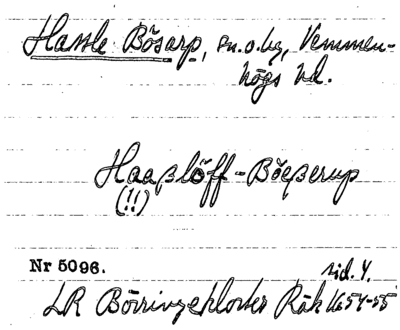 Hassle Bösarp, sn. o. by, Vemmen-
högs hd.
Haaßlöff-Böeßerup
(!!)
Nr 5096. sid. 4.
LR Börringekloster Räk 1654-55